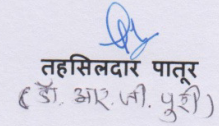 तहसिलदार पातूर
( डॉ. आर. जी. पुरी )